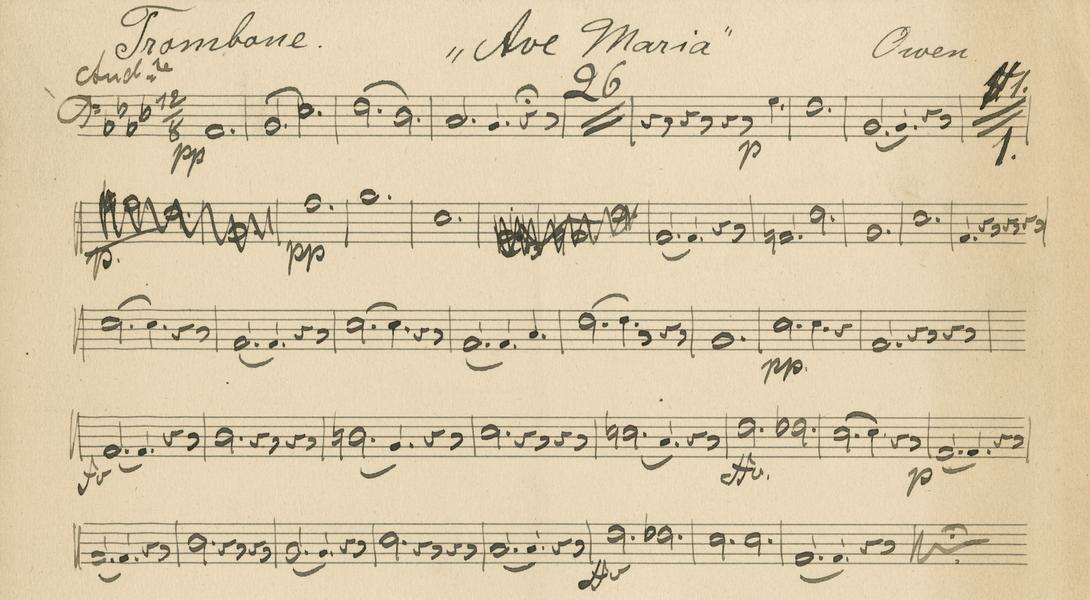 Trombone. „Ave Maria" Owen
And.te
12
8
26
#1.
pp p 1.
p. pp
pp.
fv ffv. p
ffv